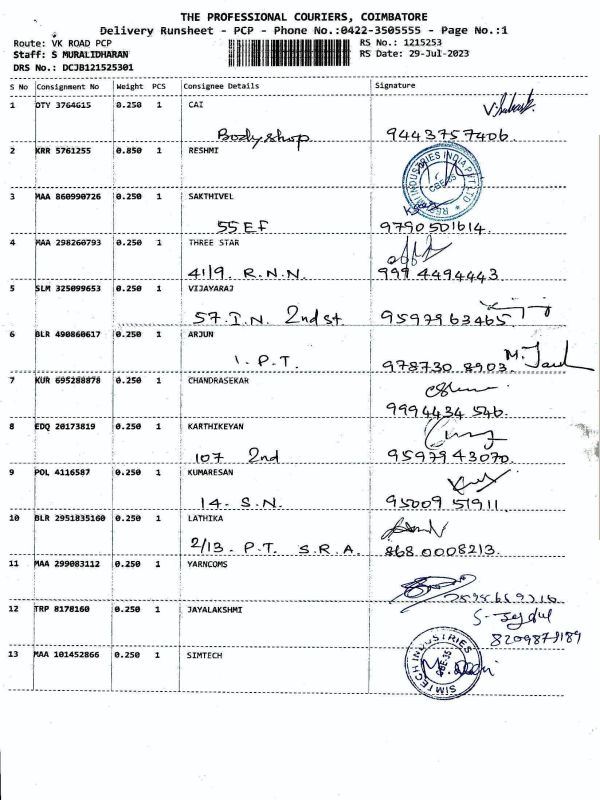 THE PROFESSIONAL COURIERS, COIMBATORE
Delivery Runsheet - PCP - Phone No.:0422-3505555 - Page No.:1
Route: VK ROAD PCP RS No.: 1215253
Staff: S MURALIDHARAN RS Date: 29-Jul-2023
DRS No.: DCJB121525301
S No Consignment No Weight PCS Consignee Details Signature
1 DTY 3764615 0.250 1 CAI
Bodyshop 9443757406.
2 KRR 5761255 0.850 1 RESHMI
RESHMI INDUSTRIES INDIA PVT LTD
CBE-35
3 MAA 860990726 0.250 1 SAKTHIVEL
55 EF 9790501614.
4 MAA 298260793 0.250 1 THREE STAR
41/9. R.N.N. 999 4494443.
5 SLM 325099653 0.250 1 VIJAYARAJ
57. I.N. 2nd st. 9597963465.
6 BLR 490860617 0.250 1 ARJUN
1. P.T. 978730 8903.
7 KUR 695288878 0.250 1 CHANDRASEKAR
9994434 546.
8 EDQ 20173819 0.250 1 KARTHIKEYAN
107 2nd 9597943070.
9 POL 4116587 0.250 1 KUMARESAN
14. S.N. 95009 51911.
10 BLR 2951835160 0.250 1 LATHIKA
2/13. P.T. S.R.A. 868.0008213.
11 MAA 299083112 0.250 1 YARNCOMS
12 TRP 8178160 0.250 1 JAYALAKSHMI
13 MAA 101452866 0.250 1 SIMTECH
SIMTECH INDUSTRIES
CBE-35